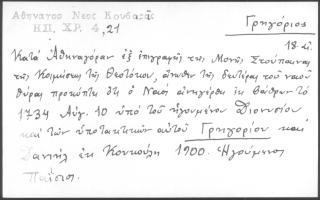 Αθηναγόρας Νέος Κουβαρᾶς
ΗΠ. ΧΡ. 4, 21
Γρηγόριος
18 αἰ.
Κατά Ἀθηναγόραν ἐξ ἐπιγραφῆς τῆς Μονῆς Στούπαινας
τῆς Κοιμήσεως τῆς Θεοτόκου, ἄνωθεν τῆς δευτέρας τοῦ ναοῦ
θύρας προκύπτει ὅτι ὁ Ναός ἀνηγέρθη ἐκ βάθρων τό
1734 Αὐγ. 10 ὑπό τοῦ ἡγουμένου Διονυσίου
καί τῶν ὑποτακτικῶν αὐτοῦ Γρηγορίου καί
Δανιήλ ἐκ Κουκούλη 1900. Ἡγούμενος
Παΐσιος.